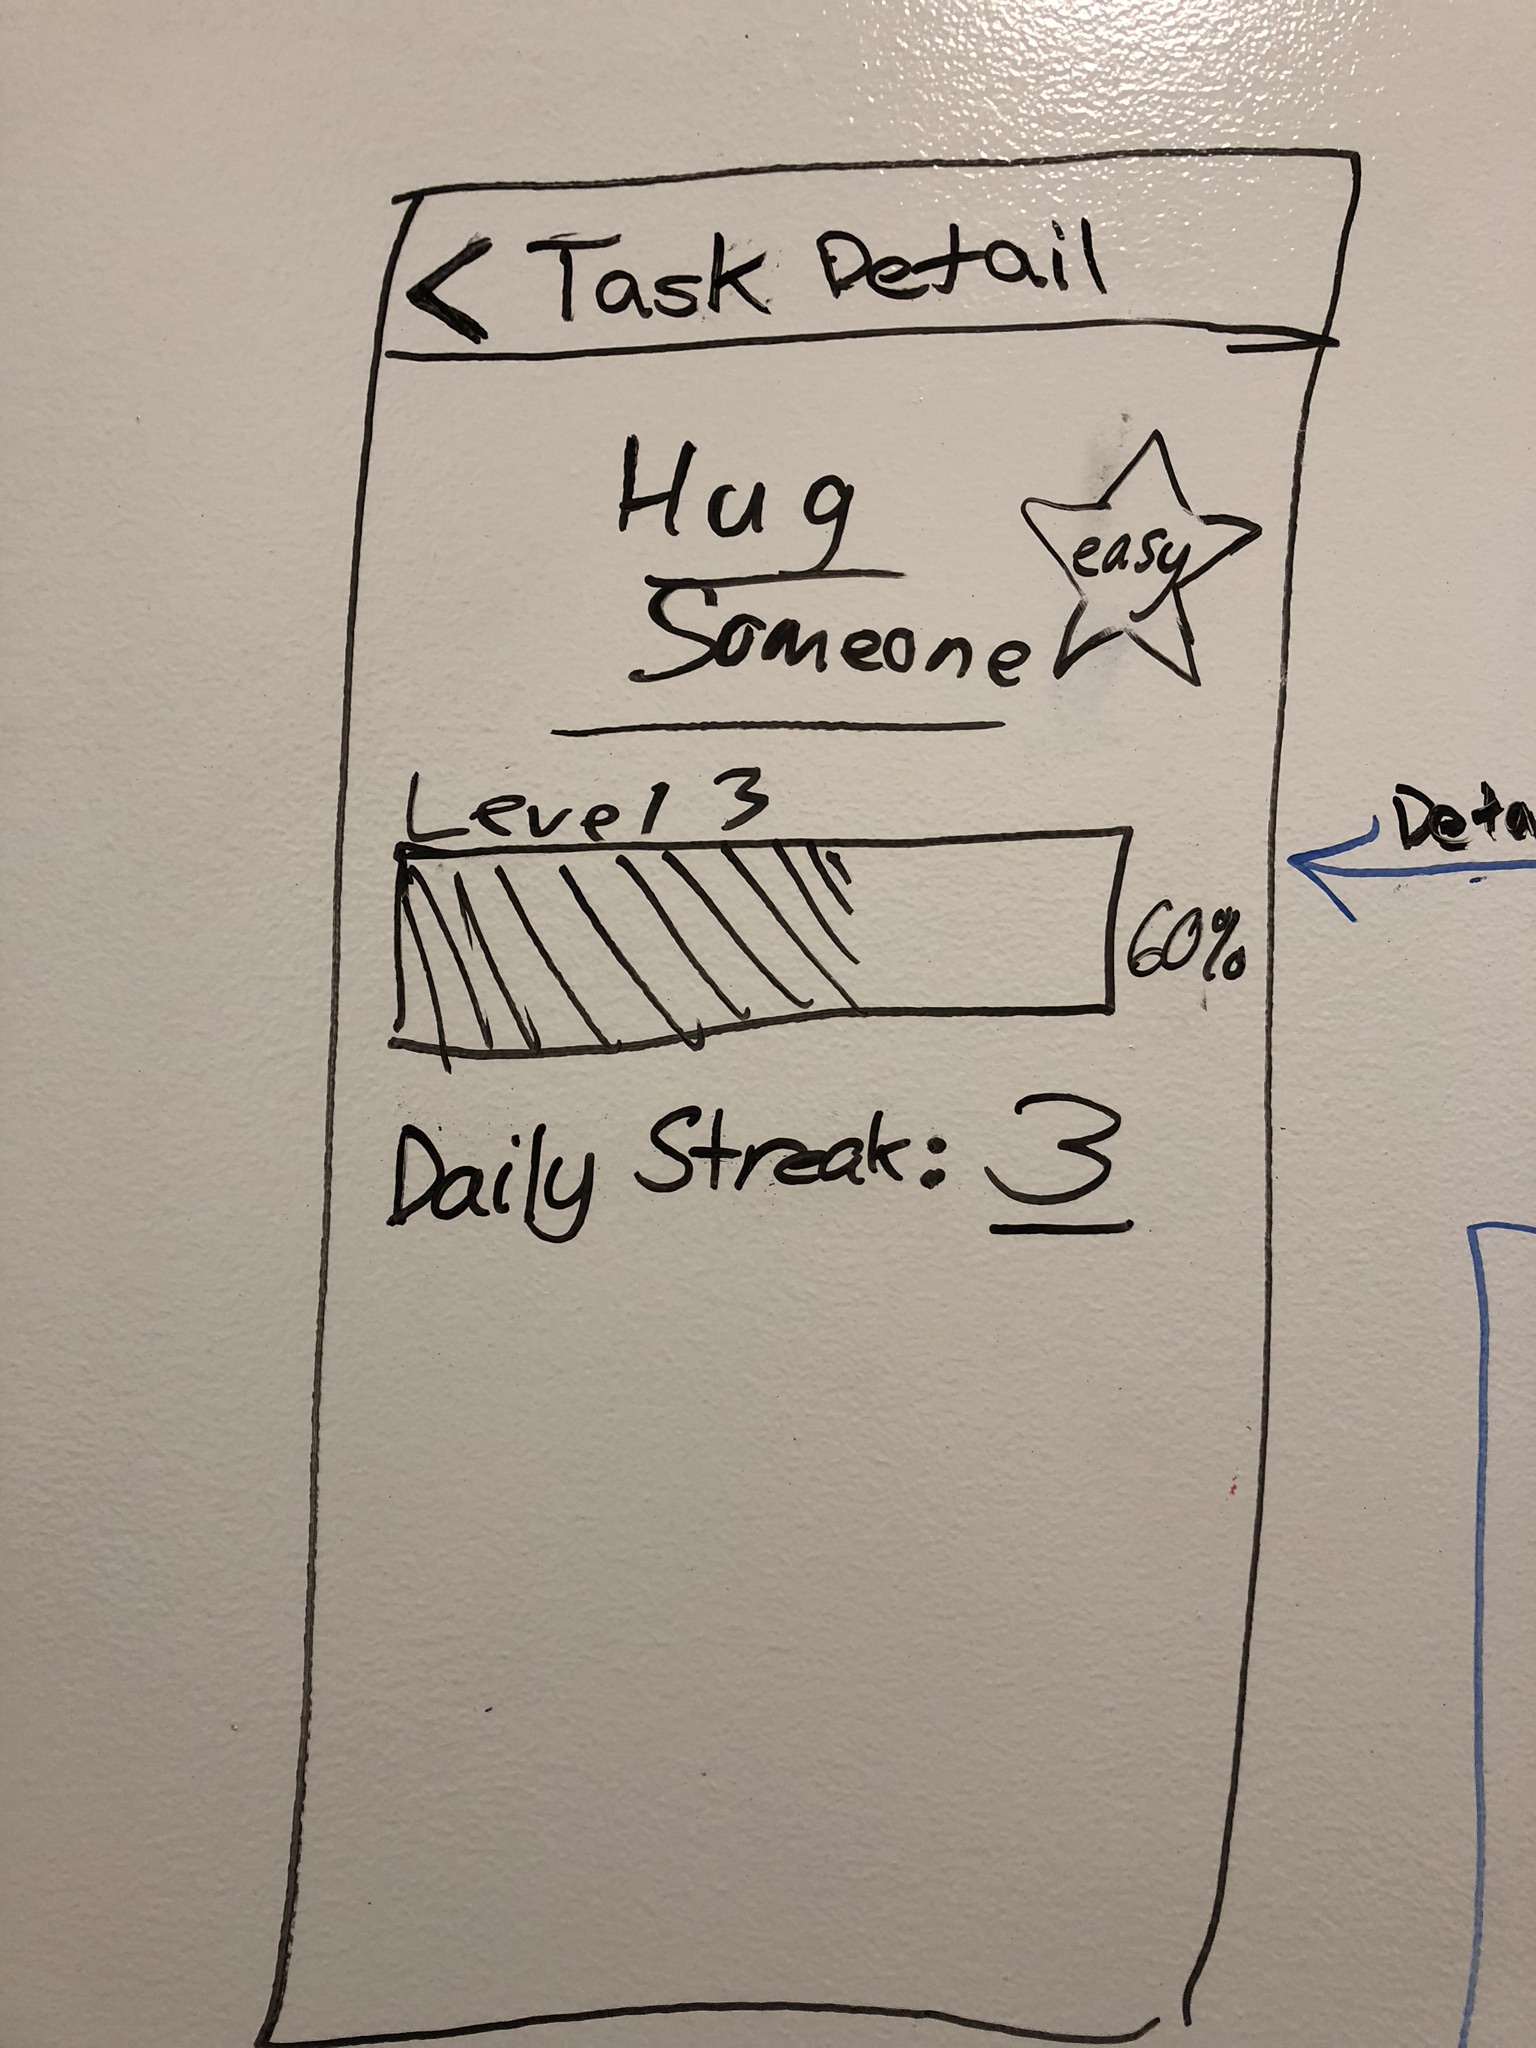 < Task Detail
Hug
Someone
easy
Level 3
60%
Daily Streak: 3